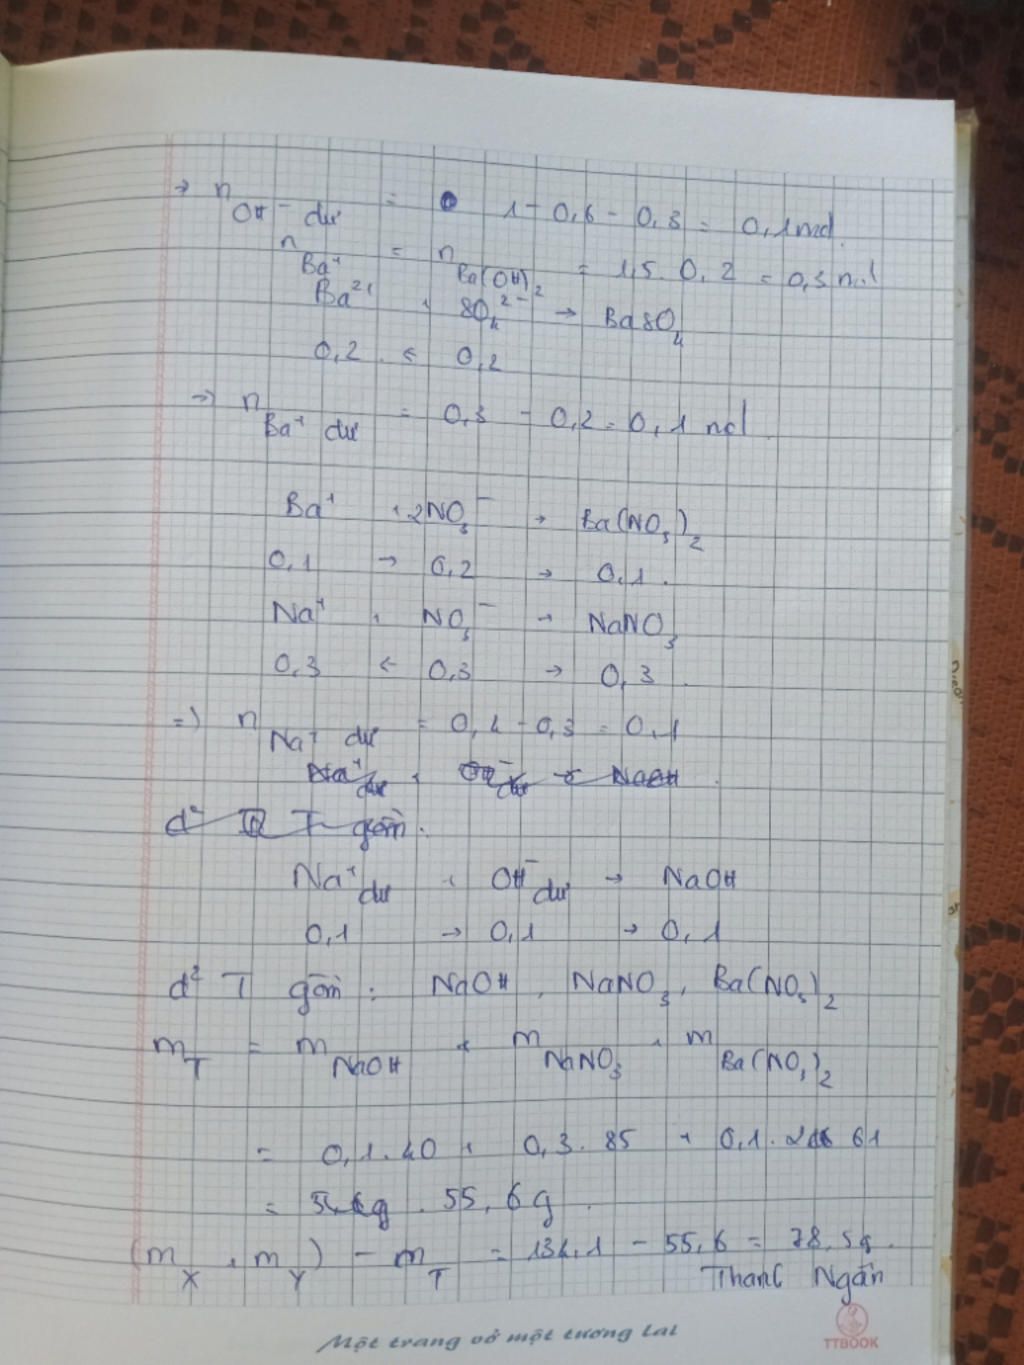 → n OH⁻ dư = 1 - 0,6 - 0,3 = 0,1 mol
n Ba⁺ = n Ba(OH)₂ = 1,5 . 0,2 = 0,3 mol
Ba²⁺ + SO₄²⁻ → BaSO₄
0,2 ← 0,2
→ n Ba⁺ dư = 0,3 - 0,2 = 0,1 mol
Ba⁺ + 2NO₃⁻ → Ba(NO₃)₂
0,1 → 0,2 → 0,1.
Na⁺ + NO₃⁻ → NaNO₃
0,3 ← 0,3 → 0,3.
=) n Na⁺ dư = 0,4 - 0,3 = 0,1
Na⁺ dư + OH⁻ dư → NaOH
d² T gồm.
Na⁺ dư + OH⁻ dư → NaOH
0,1 → 0,1 → 0,1
d² T gồm : NaOH, NaNO₃, Ba(NO₃)₂
m T = m NaOH + m NaNO₃ + m Ba(NO₃)₂
= 0,1.40 + 0,3.85 + 0,1.261
= 55,6g.
(m X + m Y) - m T = 134,1 - 55,6 = 78,5g.
Ngân
Một trang vở một tương lai
TTBOOK